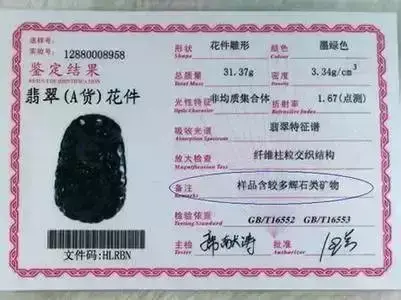 送样号:
编 号: 12880008958
鉴定结果
RESULT OF IDENTIFICATION
翡翠(A货)花件
文件码:HLRBN
形状 花件雕形
颜色 墨绿色
总质量 31.37g
Total Mass
密度 3.34g/cm³
Density
光性特征 非均质集合体
Optic Character
折射率 1.67(点测)
Refractive Index
吸收光谱 翡翠特征谱
Absorption Spectrum
放大检查 纤维柱粒交织结构
Magnification Test
备注 样品含较多辉石类矿物
Remarks
检验依据 GB/T16552 GB/T16553
Testing Standard
主检
批准